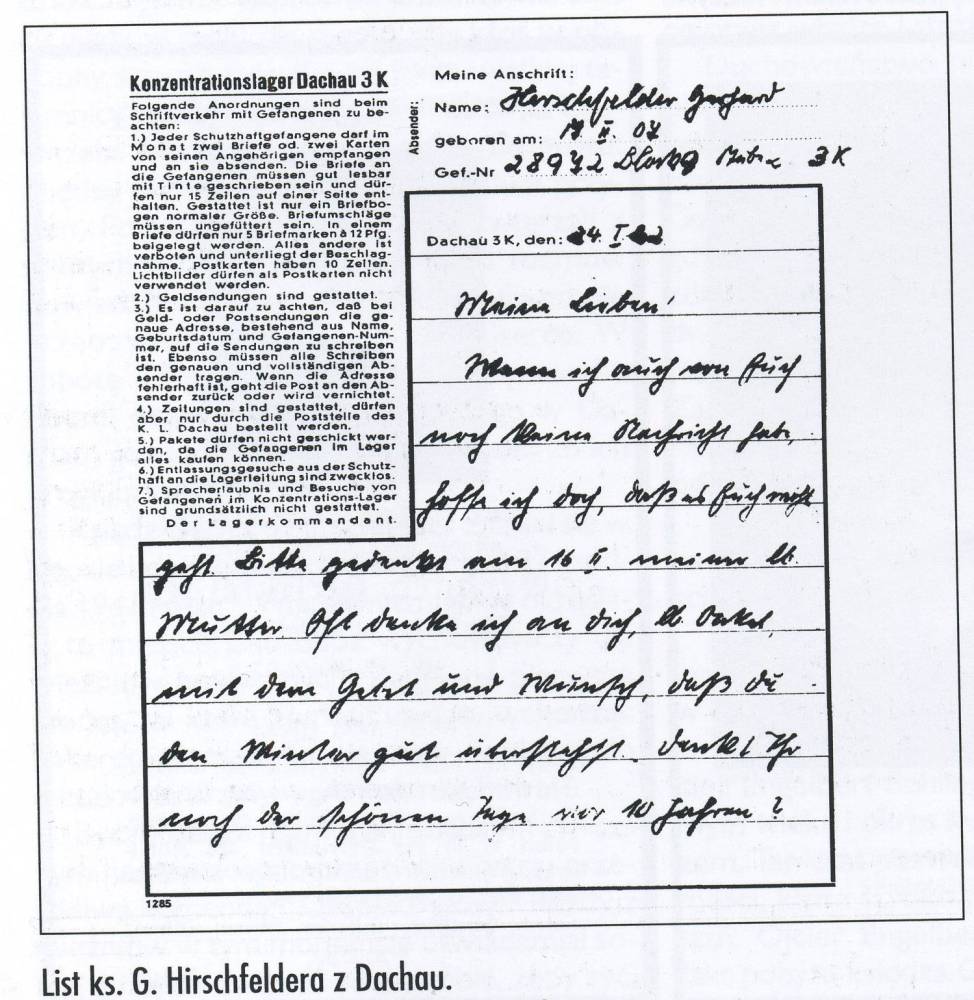 Konzentrationslager Dachau 3 K
Folgende Anordnungen sind beim
Schriftverkehr mit Gefangenen zu be-
achten:
1.) Jeder Schutzhaftgefangene darf im
Monat zwei Briefe od. zwei Karten
von seinen Angehörigen empfangen
und an sie absenden. Die Briefe an
die Gefangenen müssen gut lesbar
mit Tinte geschrieben sein und dür-
fen nur 15 Zeilen auf einer Seite ent-
halten. Gestattet ist nur ein Briefbo-
gen normaler Größe. Briefumschläge
müssen ungefüttert sein. In einem
Briefe dürfen nur 5 Briefmarken à 12 Pfg.
beigelegt werden. Alles andere ist
verboten und unterliegt der Beschlag-
nahme. Postkarten haben 10 Zeilen.
Lichtbilder dürfen als Postkarten nicht
verwendet werden.
2.) Geldsendungen sind gestattet.
3.) Es ist darauf zu achten, daß bei
Geld- oder Postsendungen die ge-
naue Adresse, bestehend aus Name,
Geburtsdatum und Gefangenen-Num-
mer, auf die Sendungen zu schreiben
ist. Ebenso müssen alle Schreiben
den genauen und vollständigen Ab-
sender tragen. Wenn die Adresse
fehlerhaft ist, geht die Post an den Ab-
sender zurück oder wird vernichtet.
4.) Zeitungen sind gestattet, dürfen
aber nur durch die Poststelle des
K. L. Dachau bestellt werden.
5.) Pakete dürfen nicht geschickt wer-
den, da die Gefangenen im Lager
alles kaufen können.
6.) Entlassungsgesuche aus der Schutz-
haft an die Lagerleitung sind zwecklos.
7.) Sprecherlaubnis und Besuche von
Gefangenen im Konzentrations-Lager
sind grundsätzlich nicht gestattet.
Der Lagerkommandant
Absender:
Meine Anschrift:
Name: Hirschfelder Gerhard
geboren am: 17. II. 07
Gef.-Nr 28972 3 K
Dachau 3 K, den: 24. I
Meine Lieben!
Wenn ich auch von Euch
noch keine Nachricht habe,
hoffe ich doch, daß es Euch recht
geht. Bitte gedenkt am 16 II. meiner lb.
Mutter. Oft denke ich an Dich, lb. Onkel,
mit dem Gebet und Wunsch, daß du
den Winter gut überstehst. Denkt Ihr
noch der schönen Tage vor 10 Jahren?
1285
List ks. G. Hirschfeldera z Dachau.